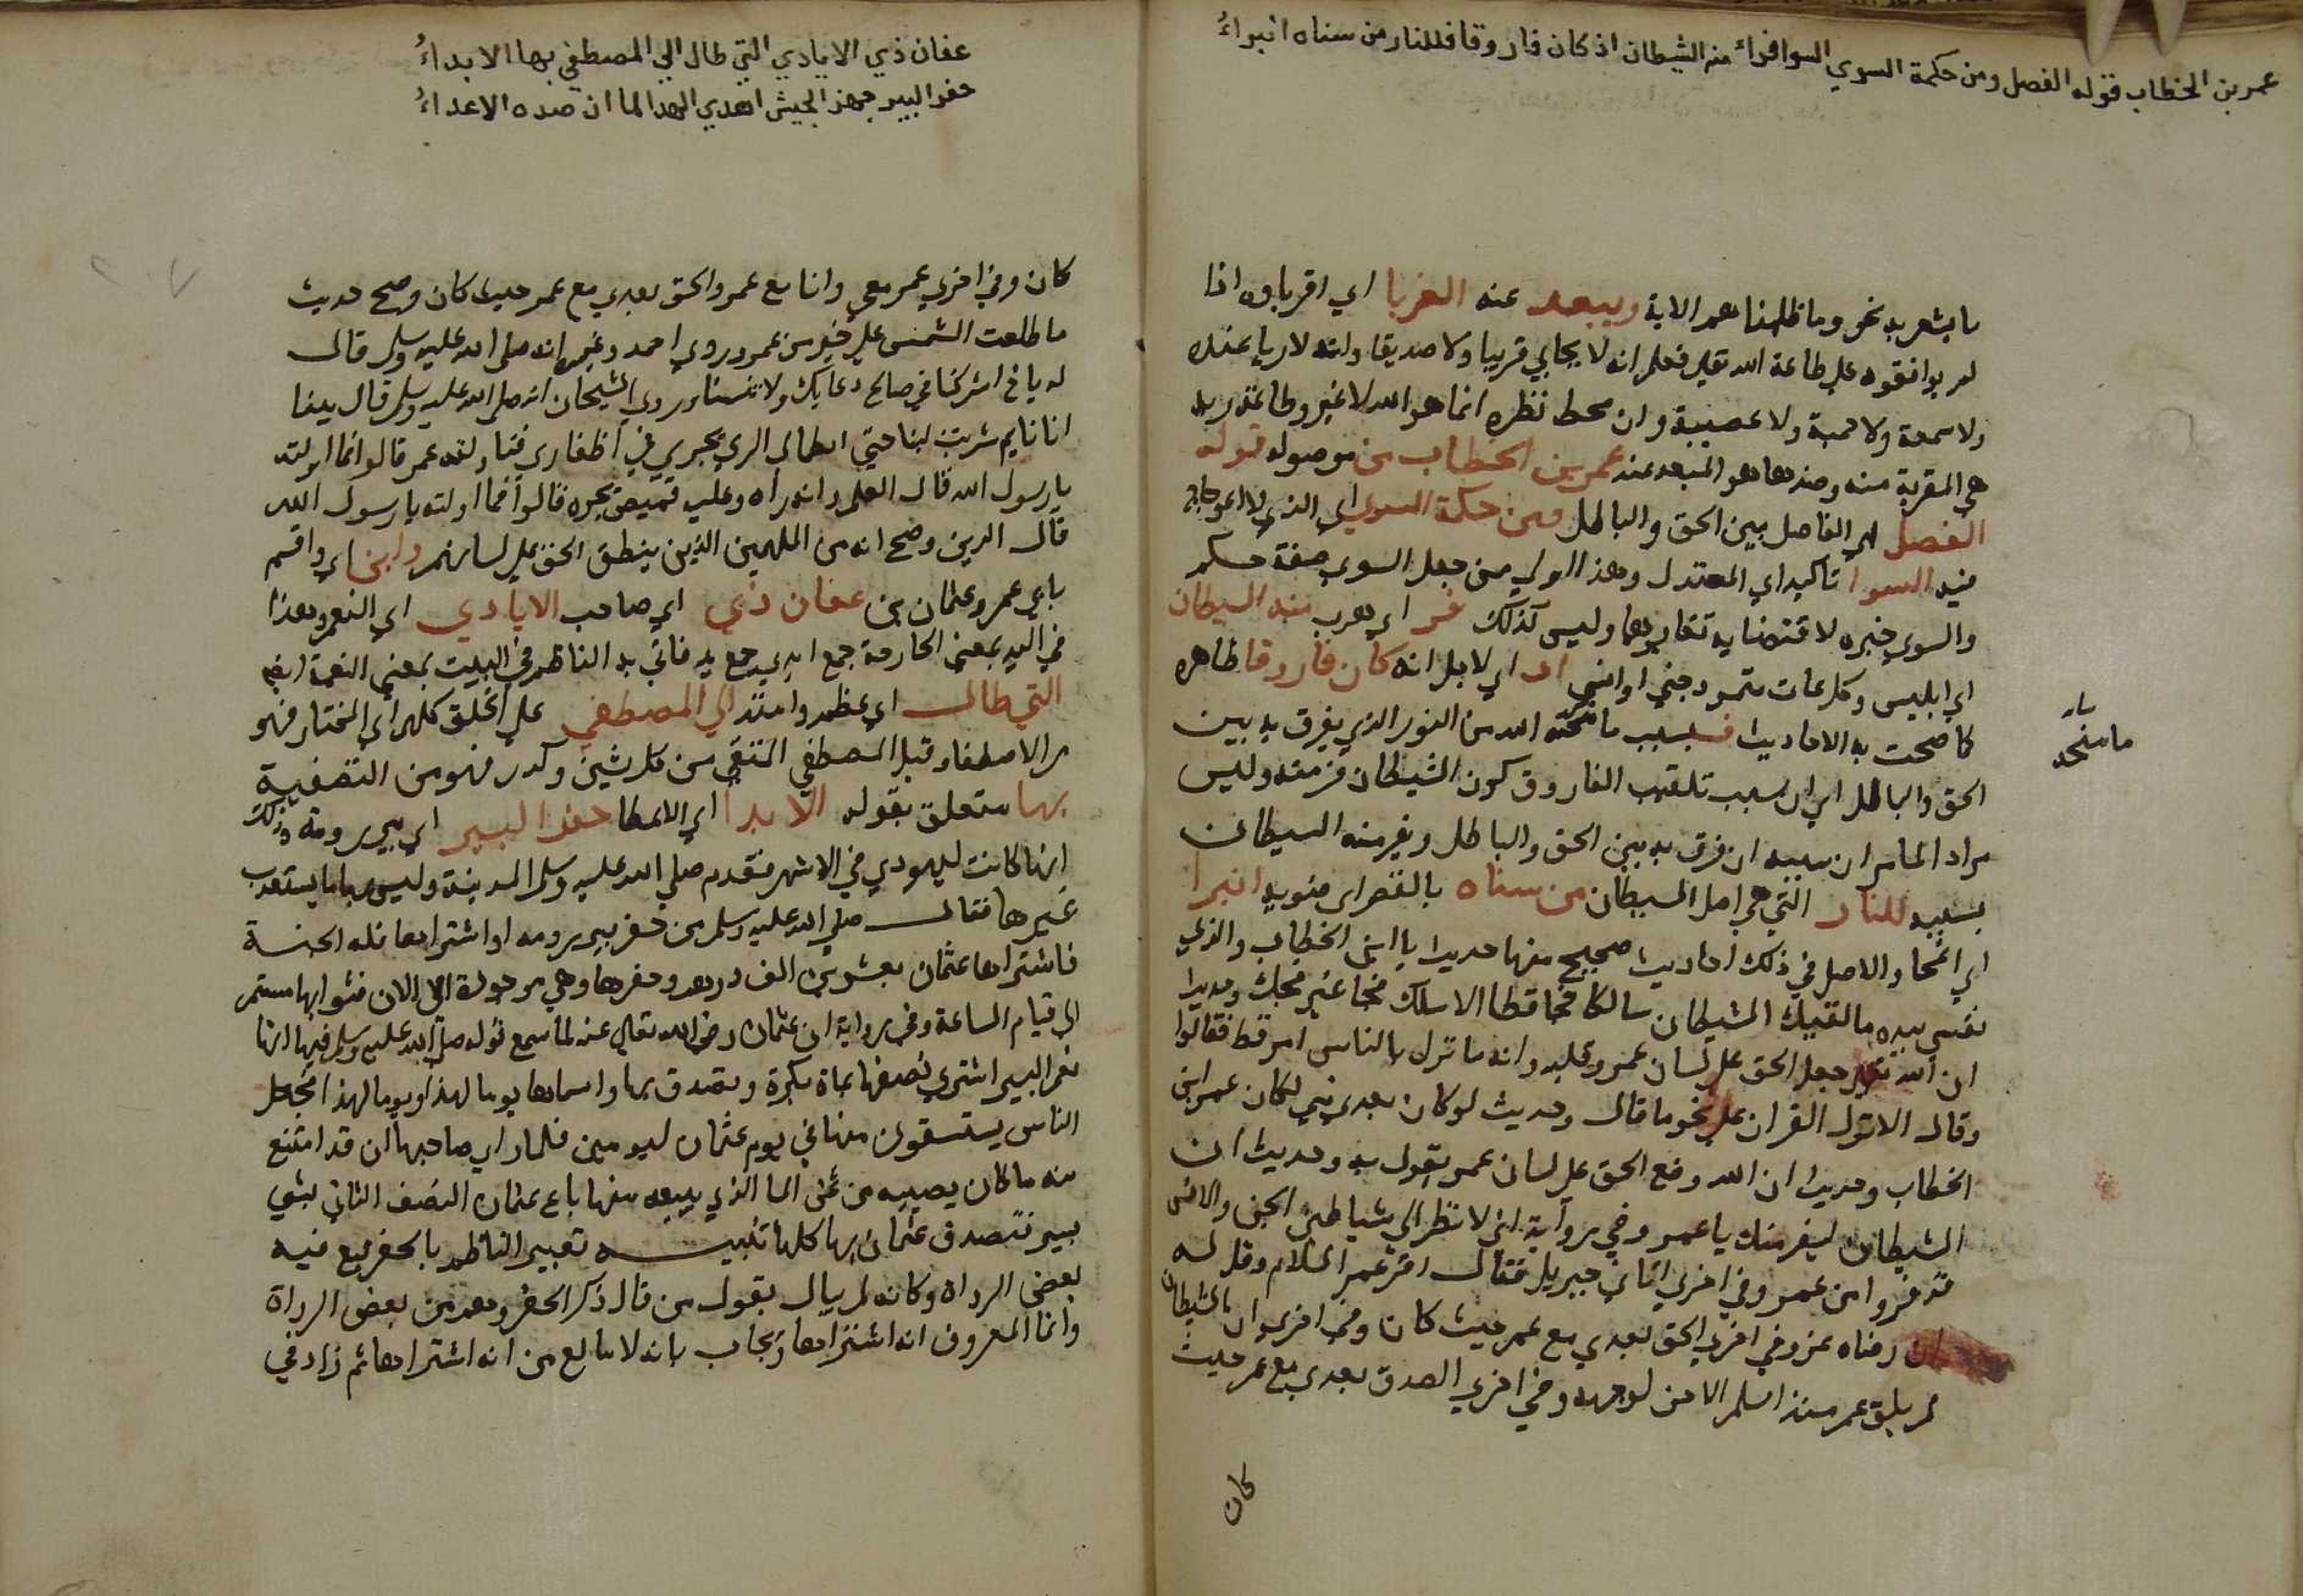 عمر بن الخطاب قوله الفصل ومن حكمة السوي السوا فراء منه الشيطان اذ كان فاروقا فللنار من سناه انبراءُ
ما يشعر به نحو وما ظلمناهم الاية ويبعد عنه القربا اي اقرباوه اذا
لم يوافقوه علي طاعة الله تعلي فعلم انه لا يحابي قريبا ولا صديقا وانه لا ريا عنده
ولا سمعة ولا حمية ولا عصبية وان محط نظره انما هو الله لا غير وطاعته
هي المقربة منه وضدها هو المبعد عنه عمر بن الخطاب من موصوله قوله
الفصل اي الفاصل بين الحق والباطل ومن حكمة السوي اي الذي لا اعوجاج
فيه السوا تاكيد اي المعتدل وهذا اولي من جعل السوي صفة حكم
والسوي خبره لاقتضايه تغايرهما وليس كذلك فر اي هرب منه الشيطان
اي ابليس وكل عات متمرد جني او انسي اذ اي لاجل انه كان فاروقا ظاهره
كما صحت به الاحاديث فبسبب ما منحه الله من النور الذي يفرق به بين
مامنحه
الحق والباطل اي ان سبب تلقيب الفاروق كون الشيطان فر منه وليس
مراد المامر ان سببه ان فرق به بين الحق والباطل ويفر منه الشيطان
بسببه للنار التي هي اصل الشيطان من سناه بالقصر اي ضويه انبرا
اي انمحا والاصل في ذلك احاديث صحيح منها حديث يا ابن الخطاب والذي
نفسي بيده ما لقيك الشيطان سالكا فجا قط الا سلك فجا غير فجك وحديث
ان الله تعلي جعل الحق علي لسان عمر وقلبه وانه ما نزل بالناس امر قط فقالوا
وقال الا نزل القران علي نحو ما قال وحديث لو كان بعدي نبي لكان عمر ابن
الخطاب وحديث ان الله وضع الحق علي لسان عمر يقول به وحديث ان
الشيطان ليفر منك يا عمر وفي رواية اني لا نظر الي شياطين الجن والانس
قد فروا من عمر وفي اخري اتاني جبريل فقال اقر عمر السلام وقل له
ان رضاه عز وفي اخري الحق بعدي مع عمر حيث كان وفي اخري ان الشيطان
لم يلق عمر منذ اسلم الا خر لوجهه وفي اخري الصدق بعدي مع عمر حيث
كان
عفان ذي الايادي التي طال الي المصطفي بها الابداءُ
حفر البير جهز الجيش اهدي الهدا لما ان صده الاعداءُ
كان وفي اخري عمر معي وانا مع عمر والحق بعدي مع عمر حيث كان وصح حديث
ما طلعت الشمس علي خير من عمر وروي احمد وغيره انه صلي الله عليه وسلم قال
له يا اخي اشركنا في صالح دعايك ولا تنسنا وروي الشيخان انه صلي الله عليه وسلم قال بينا
انا نايم شربت لبنا حتي الري يجري في اظفاري فناولته عمر قالوا فما اولته
يا رسول الله قال العلم وانه راه وعليه قميص يجره قالوا فما اولته يا رسول الله
قال الدين وصح انه من الملهمين الذين ينطق الحق علي لسانهم وابن اي واقسم
باي عمر وعثمان بن عفان ذي اي صاحب الايادي اي النعم وهذا
في اليد بمعني الجارحة جمع ايدي جمع يد فاتي به الناظم في البيت بمعني النعمة ايضا
التي طال اي عظم وامتد الي المصطفي علي الخلق كلهم اي المختار فهو
من الاصطفا وقيل المصطفي المنتقي من كل شين وكدر فهو من التصفية
بها متعلق بقوله الابدا اي الاعطا حفر البير اي بير رومة وذلك
انها كانت ليهودي في الاشهر فقدم صلي الله عليه وسلم المدينة وليس بها ما يستعذب
غيرها فقال صلي الله عليه وسلم من حفر بير رومه او اشتراها فله الجنة
فاشتراها عثمان بعشرين الف درهم وحفرها وهي موجودة الي الان فثوابها مستمر
الي قيام الساعة وفي رواية ان عثمان رضي الله تعالي عنه لما سمع قوله صلي الله عليه وسلم فيها انها
نعم البير اشتري نصفها بماة بكرة وتصدق بها واسماها يوما لهذا ويوما لهذا فجعل
الناس يستسقون منها في يوم عثمان ليومين فلما راي صاحبها ان قد امتنع
منه ما كان يصيبه من ثمن الما الذي يبيعه منها باع عثمان النصف الثاني بشي
يسير فتصدق عثمان بها كلها تنبيه تعبير الناظم بالحفر وقع فيه
بعض الرواة وكانه لم يبال بقول من قال ذكر الحفر وهم من بعض الرواة
وانما المعروف انه اشتراها ويجاب بانه لا مانع من انه اشتراها ثم زاد في